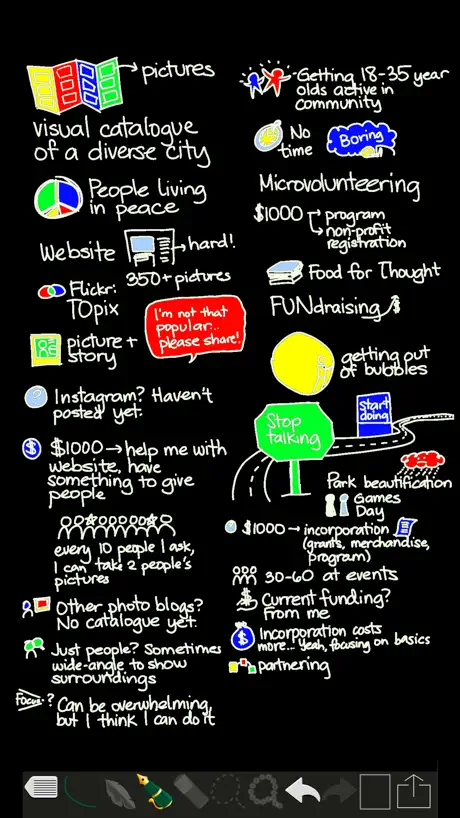 pictures
visual catalogue
of a diverse city
People living
in peace
Website
hard!
350+ pictures
Flickr:
TOpix
I'm not that
popular...
please share!
picture +
story
? Instagram? Haven't
posted yet.
$ $1000 → help me with
website, have
something to give
people
every 10 people I ask,
I can take 2 people's
pictures
Other photo blogs?
No catalogue yet.
Just people? Sometimes
wide-angle to show
surroundings
Focus? Can be overwhelming,
but I think I can do it
Getting 18-35 year
olds active in
community
No
time
Boring
Microvolunteering
$1000 program
non-profit
registration
Food for Thought
FUNdraising $
getting out
of bubbles
Stop
talking
Start
doing
Park beautification
Games
Day
$1000 → incorporation
(grants, merchandise,
program)
30-60 at events
$ Current funding?
From me
$ Incorporation costs
more... Yeah, focusing on basics
partnering